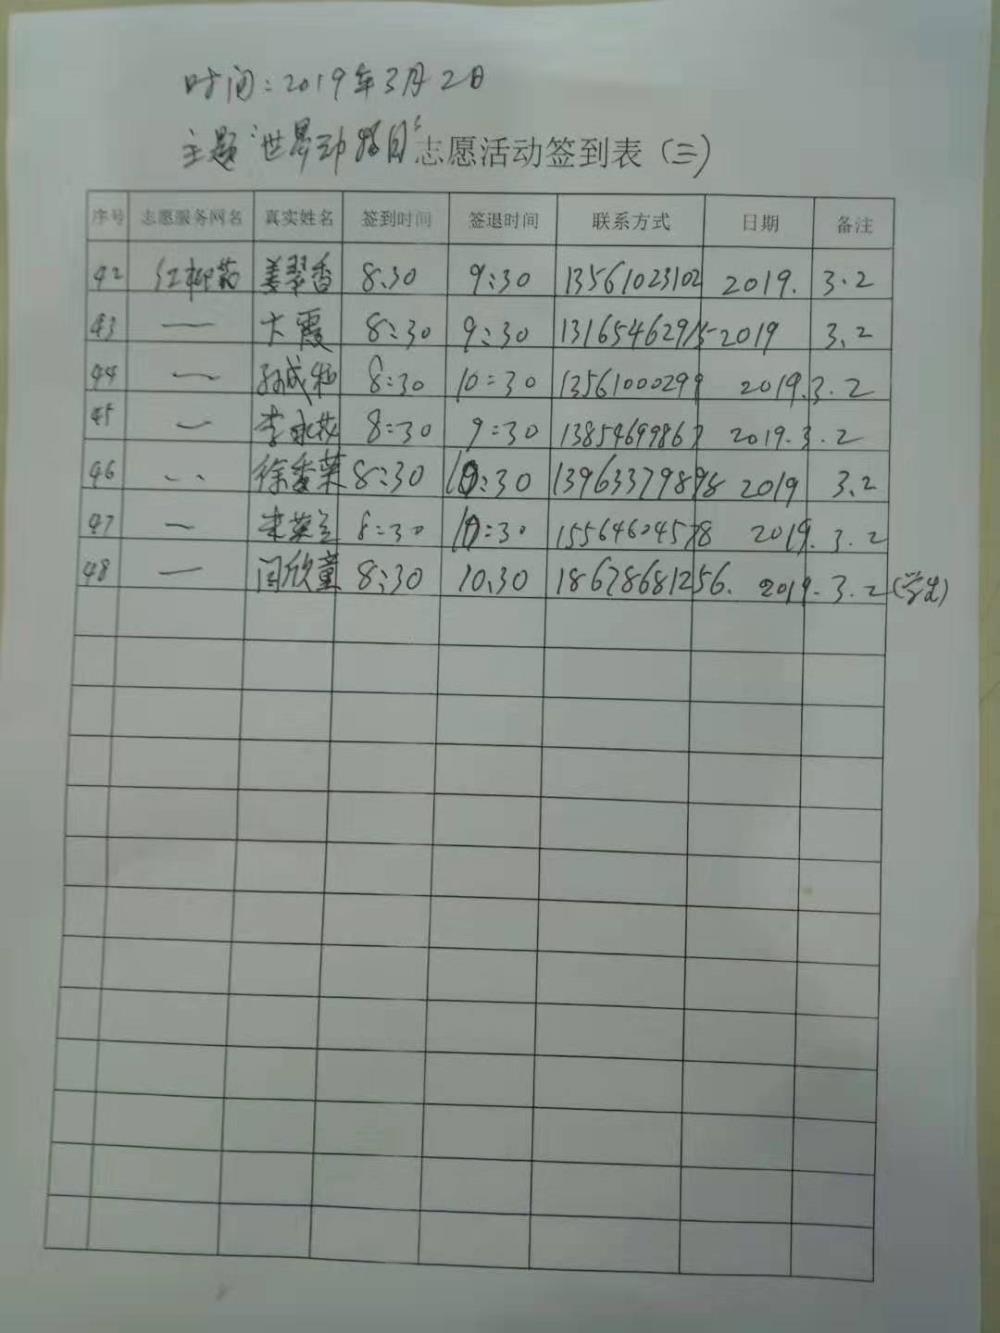 时间:2019年3月2日
主题"世界动物日"志愿活动签到表(三)
序号 志愿服务网名 真实姓名 签到时间 签退时间 联系方式 日期 备注
42 红柳菊 姜翠香 8:30 9:30 13561023102 2019. 3.2
43 — 大霞 8:30 9:30 13165462915 2019 3.2
44 — 8:30 10:30 13561000299 2019.3.2
45 — 8:30 9:30 13854699867 2019.3.2
46 徐香菜 8:30 10:30 13963379898 2019 3.2
47 — 8:30 10:30 15564604578 2019.3.2
48 — 闫欣童 8:30 10:30 18678681256. 2019.3.2(学生)